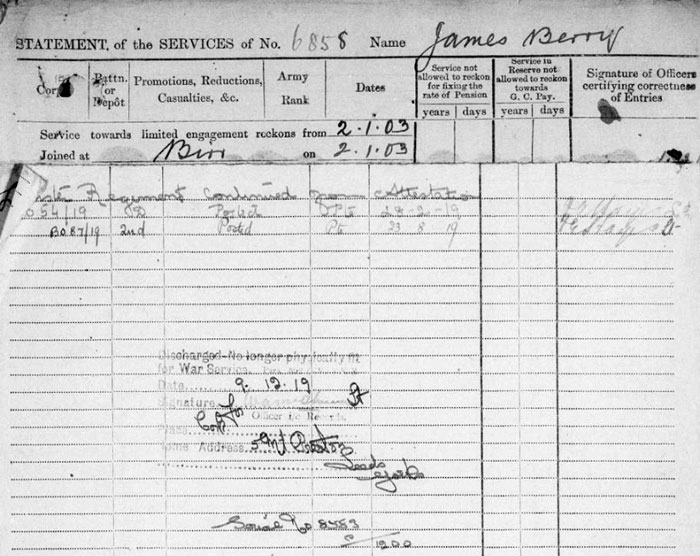 STATEMENT of the SERVICES of No. 6858 Name James Berry
Corps Battn. or Depôt Promotions, Reductions, Casualties, &c. Army Rank Dates Service not allowed to reckon for fixing the rate of Pension years days Service in Reserve not allowed to reckon towards G. C. Pay. years days Signature of Officers certifying correctness of Entries
Service towards limited engagement reckons from 2.1.03
Joined at Birr on 2.1.03
Regiment Continued from Attestation
54/19 Posted Pte 2-19
BO 87/19 2nd Posted Pte 23 8 19
Discharged-No longer physically fit
for War Service.
Date 9.12.19
Signature
Officer i/c Records.
Home Address 5 Mt Preston
Leeds
Yorks
Serial No 8483
1200